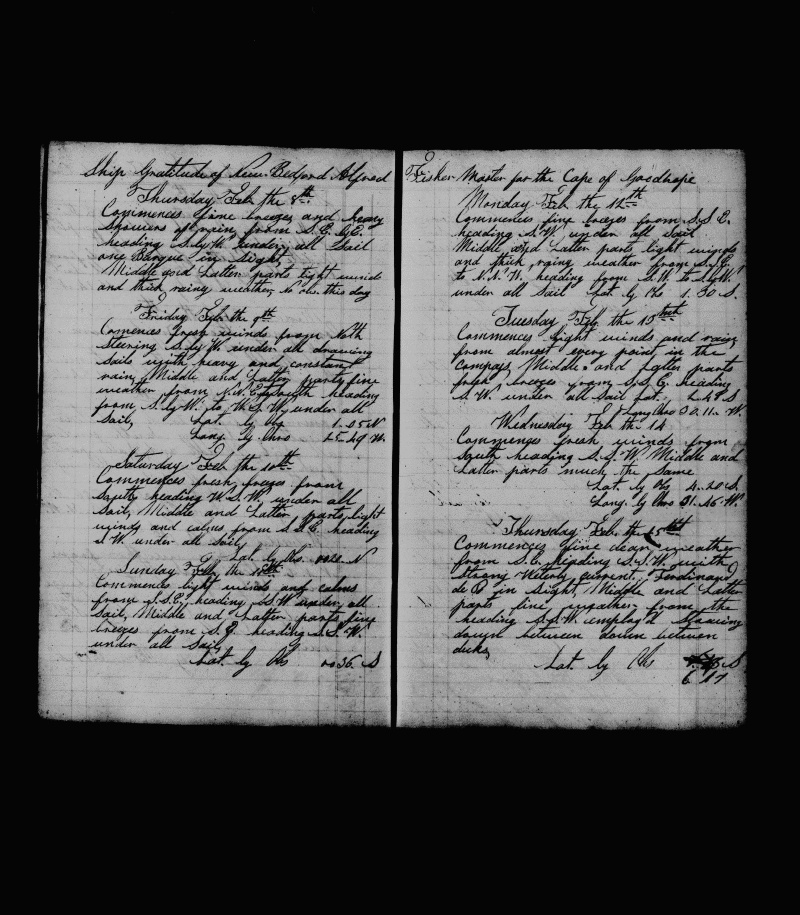 Ship Gratitude of New Bedford Alfred
Thursday Feb the 8th
Commences fine breezes and heavy
Showers of rain from S.E. by E.
heading S by W under all Sail
one Barque in Sight
Middle and Latter parts light winds
and thick rainy weather, no obs. this day
Friday Feb the 9th
Comences fresh winds from North
Steering S by W under all drawing
Sails with heavy and constant
rain, Middle and Latter parts fine
weather from N.W. to South heading
from S. by W. to W.S.W. under all
Sail, Lat. by Obs 1..05 N
Long. by Chro 25..49 W.
Saturday Feb the 10th
Commences fresh breezes from
South heading W.S.W. under all
Sail, Middle and Latter parts light
winds and calms from S.S.E. heading
S.W. under all Sail,
Lat. by Obs. 00 N
Sunday Feb the 11th
Commences light winds and calms
from S.S.E. heading S.W under all
Sail, Middle and Latter parts fine
breezes from S.E. heading S.S.W.
under all Sail,
Lat. by Obs 00 36. S
Fisher Master for the Cape of Goodhope
Monday Feb the 12th
Commences fine breezes from S.S.E.
heading S.W. under all Sail
Middle and Latter parts light winds
and thick rainy weather from S.E.
to N.W. heading from S.W. to S by W.
under all Sail Lat by Obs 1.30 S.
Tuesday Feb the 13th
Commences light winds and rain
from almost every point in the
compass, Middle and Latter parts
fresh breezes from S.S.E. heading
S.W. under all Sail Lat. 2.48 S
Long Chro 30.11. W.
Wednesday Feb the 14
Commences fresh winds from
South heading S.S.W. Middle and
Latter parts much the Same
Lat. by Obs 4.20 S.
Long. by Chro 31.46 W.
Thursday Feb. the 15th
Commences fine clear weather
from S.E. heading S.S.W. with
Strong Westerly current, Ferdinand
de in Sight, Middle and Latter
parts fine weather from the
heading S.S.W employ'd Stowing
down between down between
decks,
Lat. by Obs S
6 17